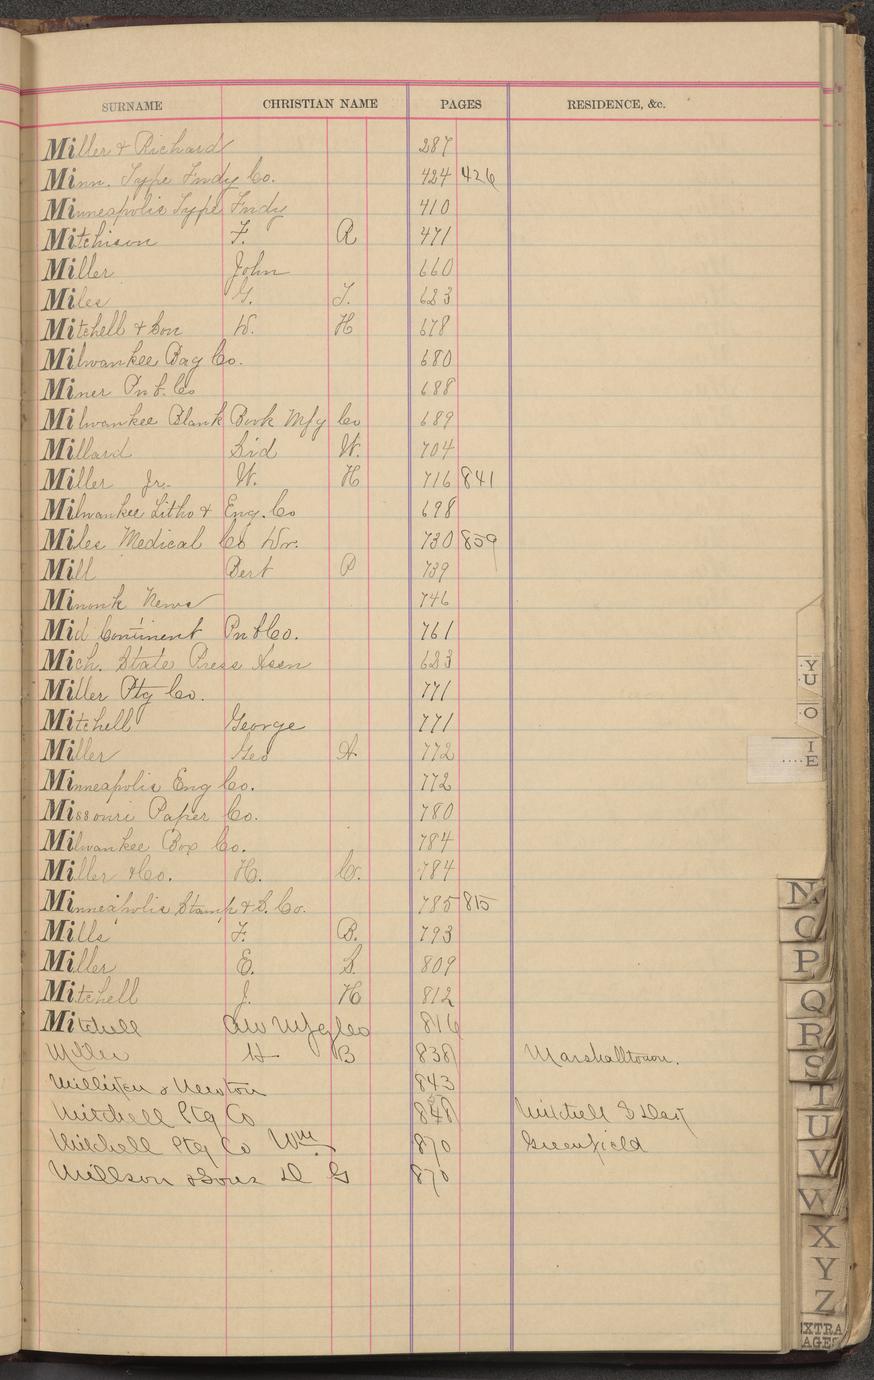 SURNAME CHRISTIAN NAME PAGES RESIDENCE, &c.
Miller & Richard 287
Minn. Type Fndy Co. 424 426
Minneapolis Type Fndy 410
Mitchison F. R 471
Miller John 660
Miles G. T. 623
Mitchell & Son W. H 678
Milwaukee Bag Co. 680
Miner Pub. Co 688
Milwaukee Blank Book Mfg Co 689
Millard Sid W. 704
Miller Jr. W. H 716 841
Milwaukee Litho & Eng. Co 698
Miles Medical Co Dr. 730 859
Mill Bert P 739
Minonk News 746
Mid Continent Pub Co. 761
Mich. State Press Assn 623
Miller Ptg Co. 771
Mitchell George 771
Miller Geo A. 772
Minneapolis Eng Co. 772
Missouri Paper Co. 780
Milwaukee Box Co. 784
Miller & Co. H. C. 784
Minneapolis Stamp & S. Co. 785 815
Mills F. B. 793
Miller E. S. 809
Mitchell J. H 812
Mitchell Mfg Co 816
Miller H B 838 Marshalltown.
Milliken & Newton 843
Mitchell Ptg Co Mitchell S Dak
Mitchell Ptg Co Wm. 870 Greenfield
Millson & Sons D G 870
YU
O
IE
N
O
P
Q
R
S
T
U
V
W
X
Y
Z
EXTRA
PAGES